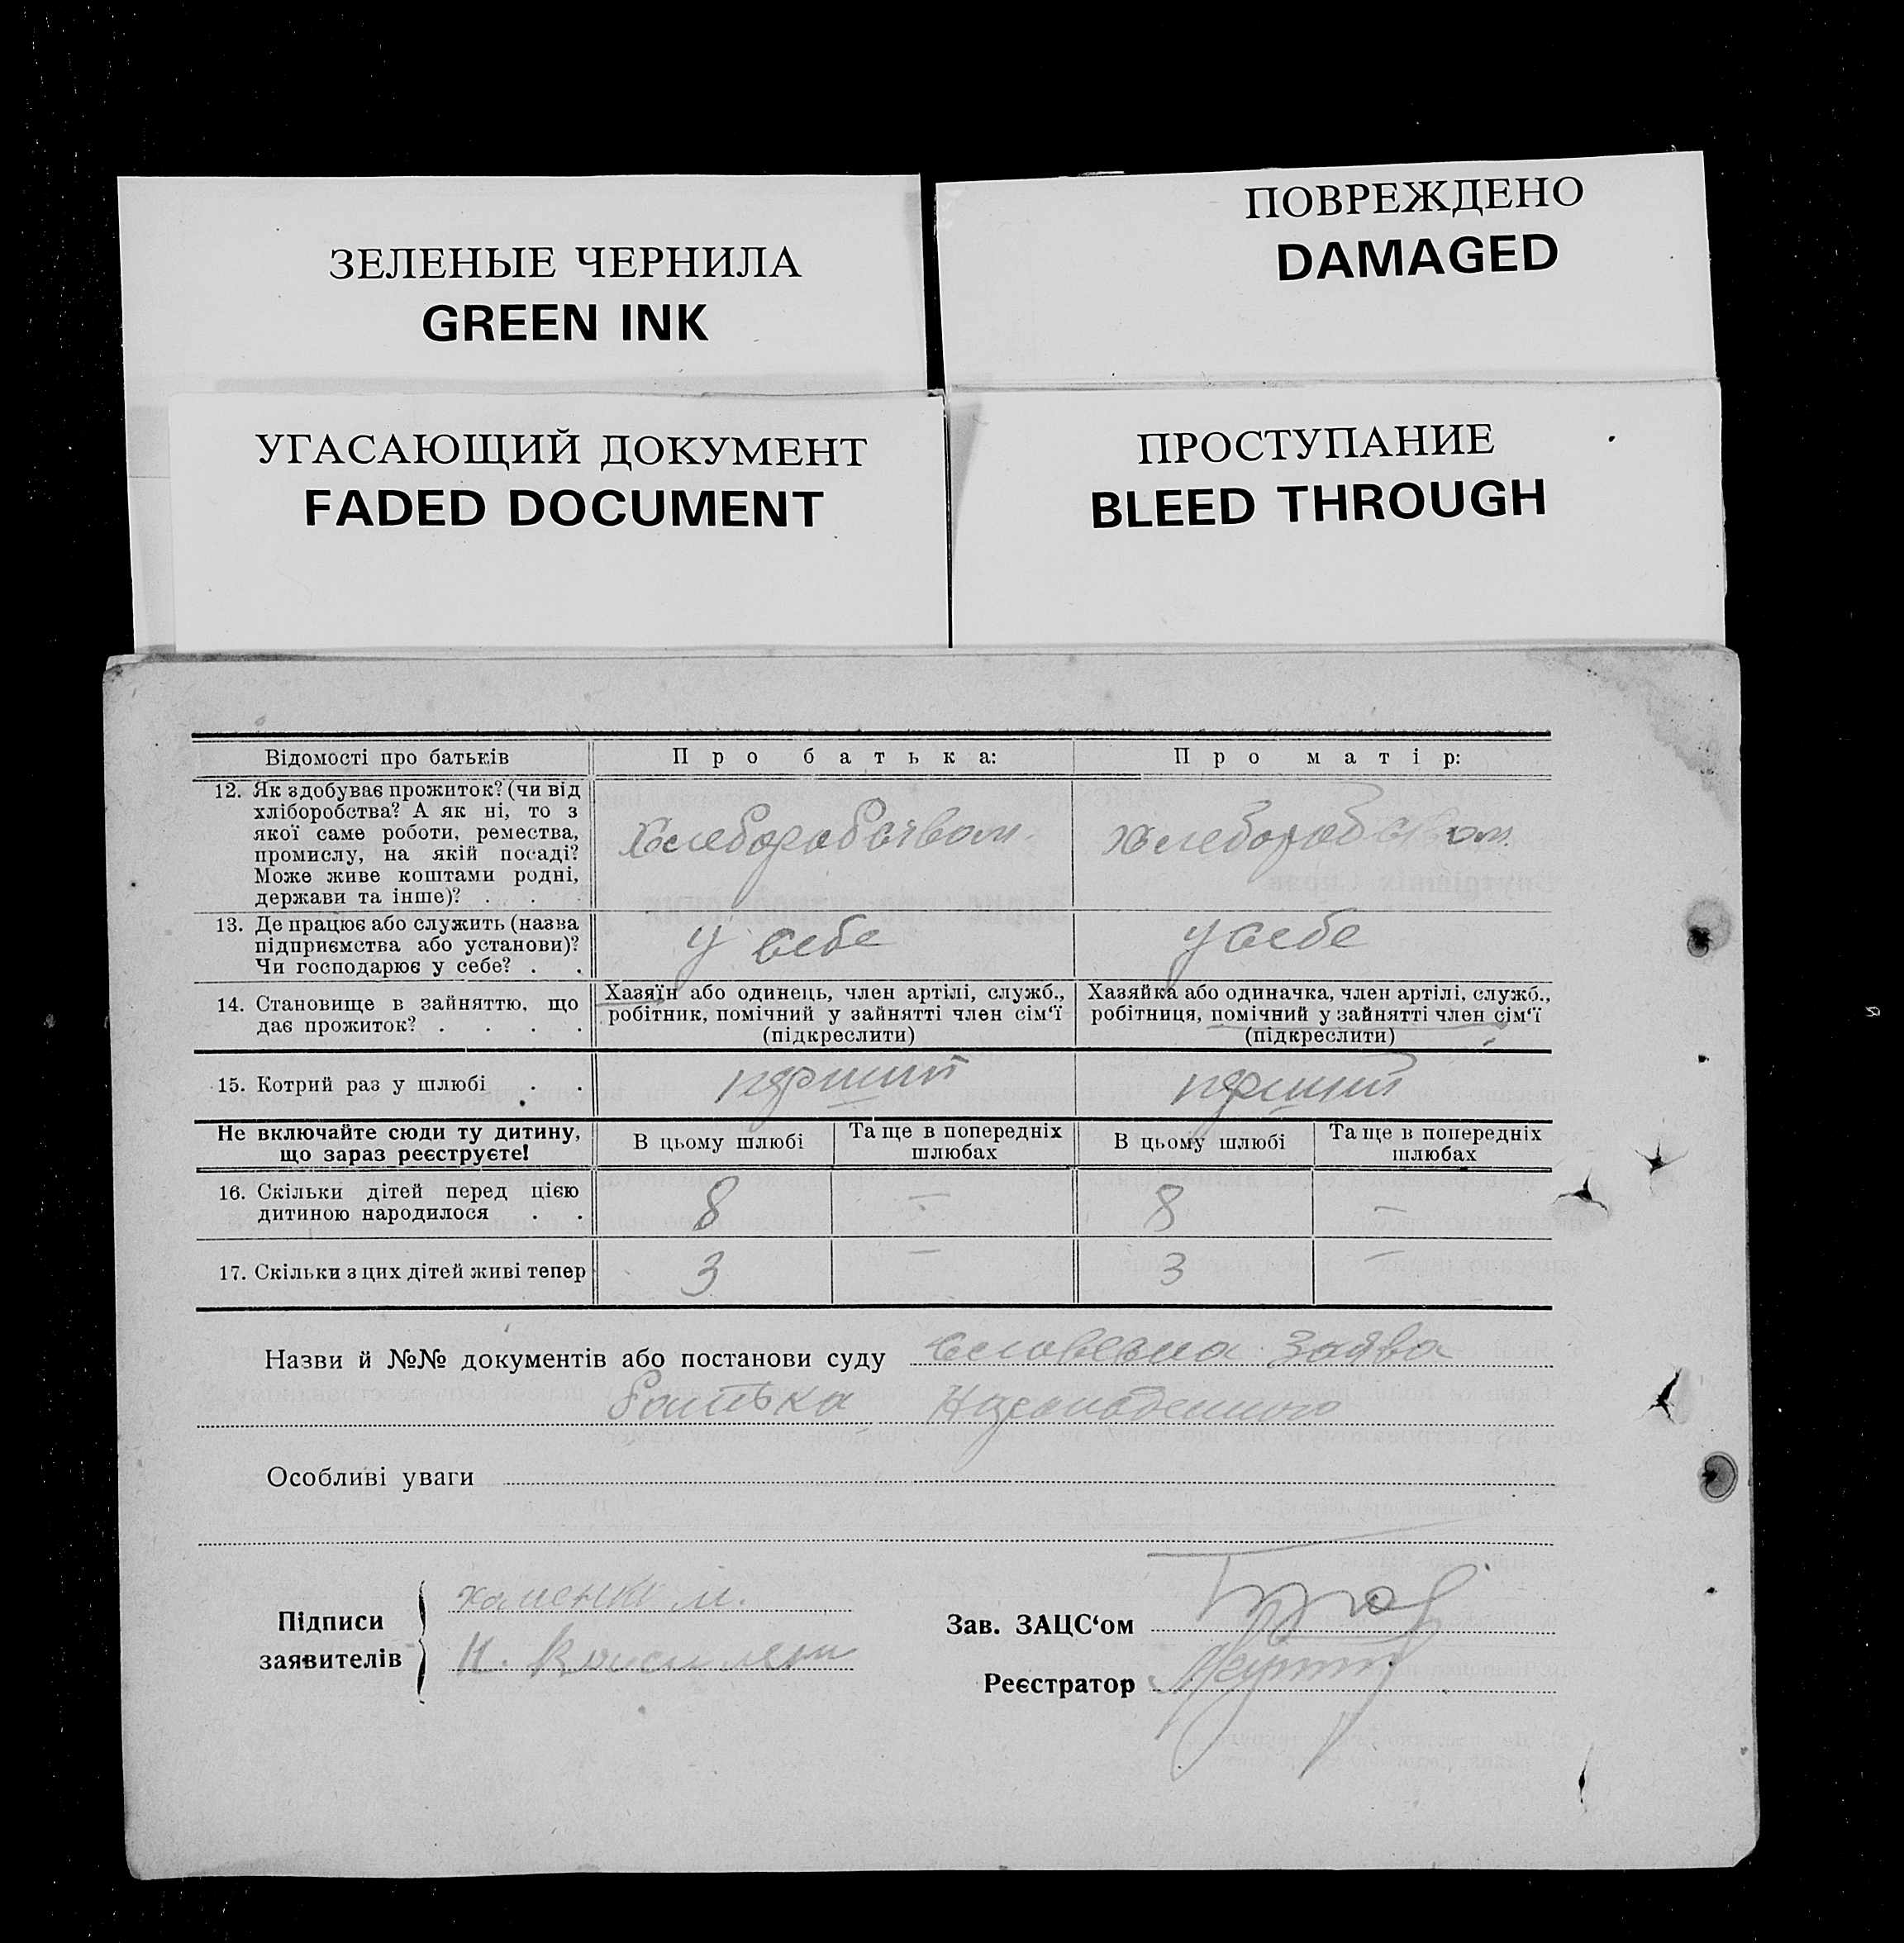 ЗЕЛЕНЫЕ ЧЕРНИЛА
GREEN INK
ПОВРЕЖДЕНО
DAMAGED
УГАСАЮЩИЙ ДОКУМЕНТ
FADED DOCUMENT
ПРОСТУПАНИЕ
BLEED THROUGH
Відомості про батьків
Про батька:
Про матір:
12. Як здобуває прожиток? (чи від
хліборобства? А як ні, то з
якої саме роботи, ремества,
промислу, на якій посаді?
Може живе коштами родні,
держави та інше)? . .
Хлеборобством
Хлеборобством
13. Де працює або служить (назва
підприємства або установи)?
Чи господарює у себе? . .
у себе
у себе
14. Становище в зайняттю, що
дає прожиток? . . . .
Хазяїн або одинець, член артілі, служб.,
робітник, помічний у зайнятті член сім‘ї
(підкреслити)
Хазяйка або одиначка, член артілі, служб.,
робітниця, помічний у зайнятті член сім‘ї
(підкреслити)
15. Котрий раз у шлюбі . .
перший
перший
Не включайте сюди ту дитину,
що зараз реєструєте!
В цьому шлюбі
Та ще в попередніх
шлюбах
В цьому шлюбі
Та ще в попередніх
шлюбах
16. Скільки дітей перед цією
дитиною народилося . .
8
—
8
—
17. Скільки з цих дітей живі тепер
3
—
3
—
Назви й №№ документів або постанови суду словесна заява
батька
Особливі уваги
Підписи
заявителів
Зав. ЗАЦС‘ом
Реєстратор